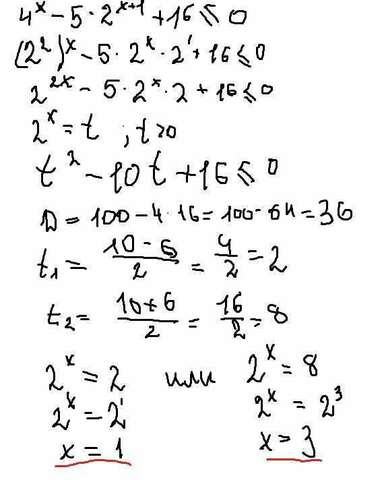 4^x - 5·2^(x+1) + 16 ≤ 0
(2²)^x - 5·2^x·2¹ + 16 ≤ 0
2^(2x) - 5·2^x·2 + 16 ≤ 0
2^x = t ; t>0
t² - 10t + 16 ≤ 0
D = 100 - 4·16 = 100 - 64 = 36
t₁ = (10 - 6)/2 = 4/2 = 2
t₂ = (10 + 6)/2 = 16/2 = 8
2^x = 2 или 2^x = 8
2^x = 2¹ 2^x = 2³
x = 1 x = 3